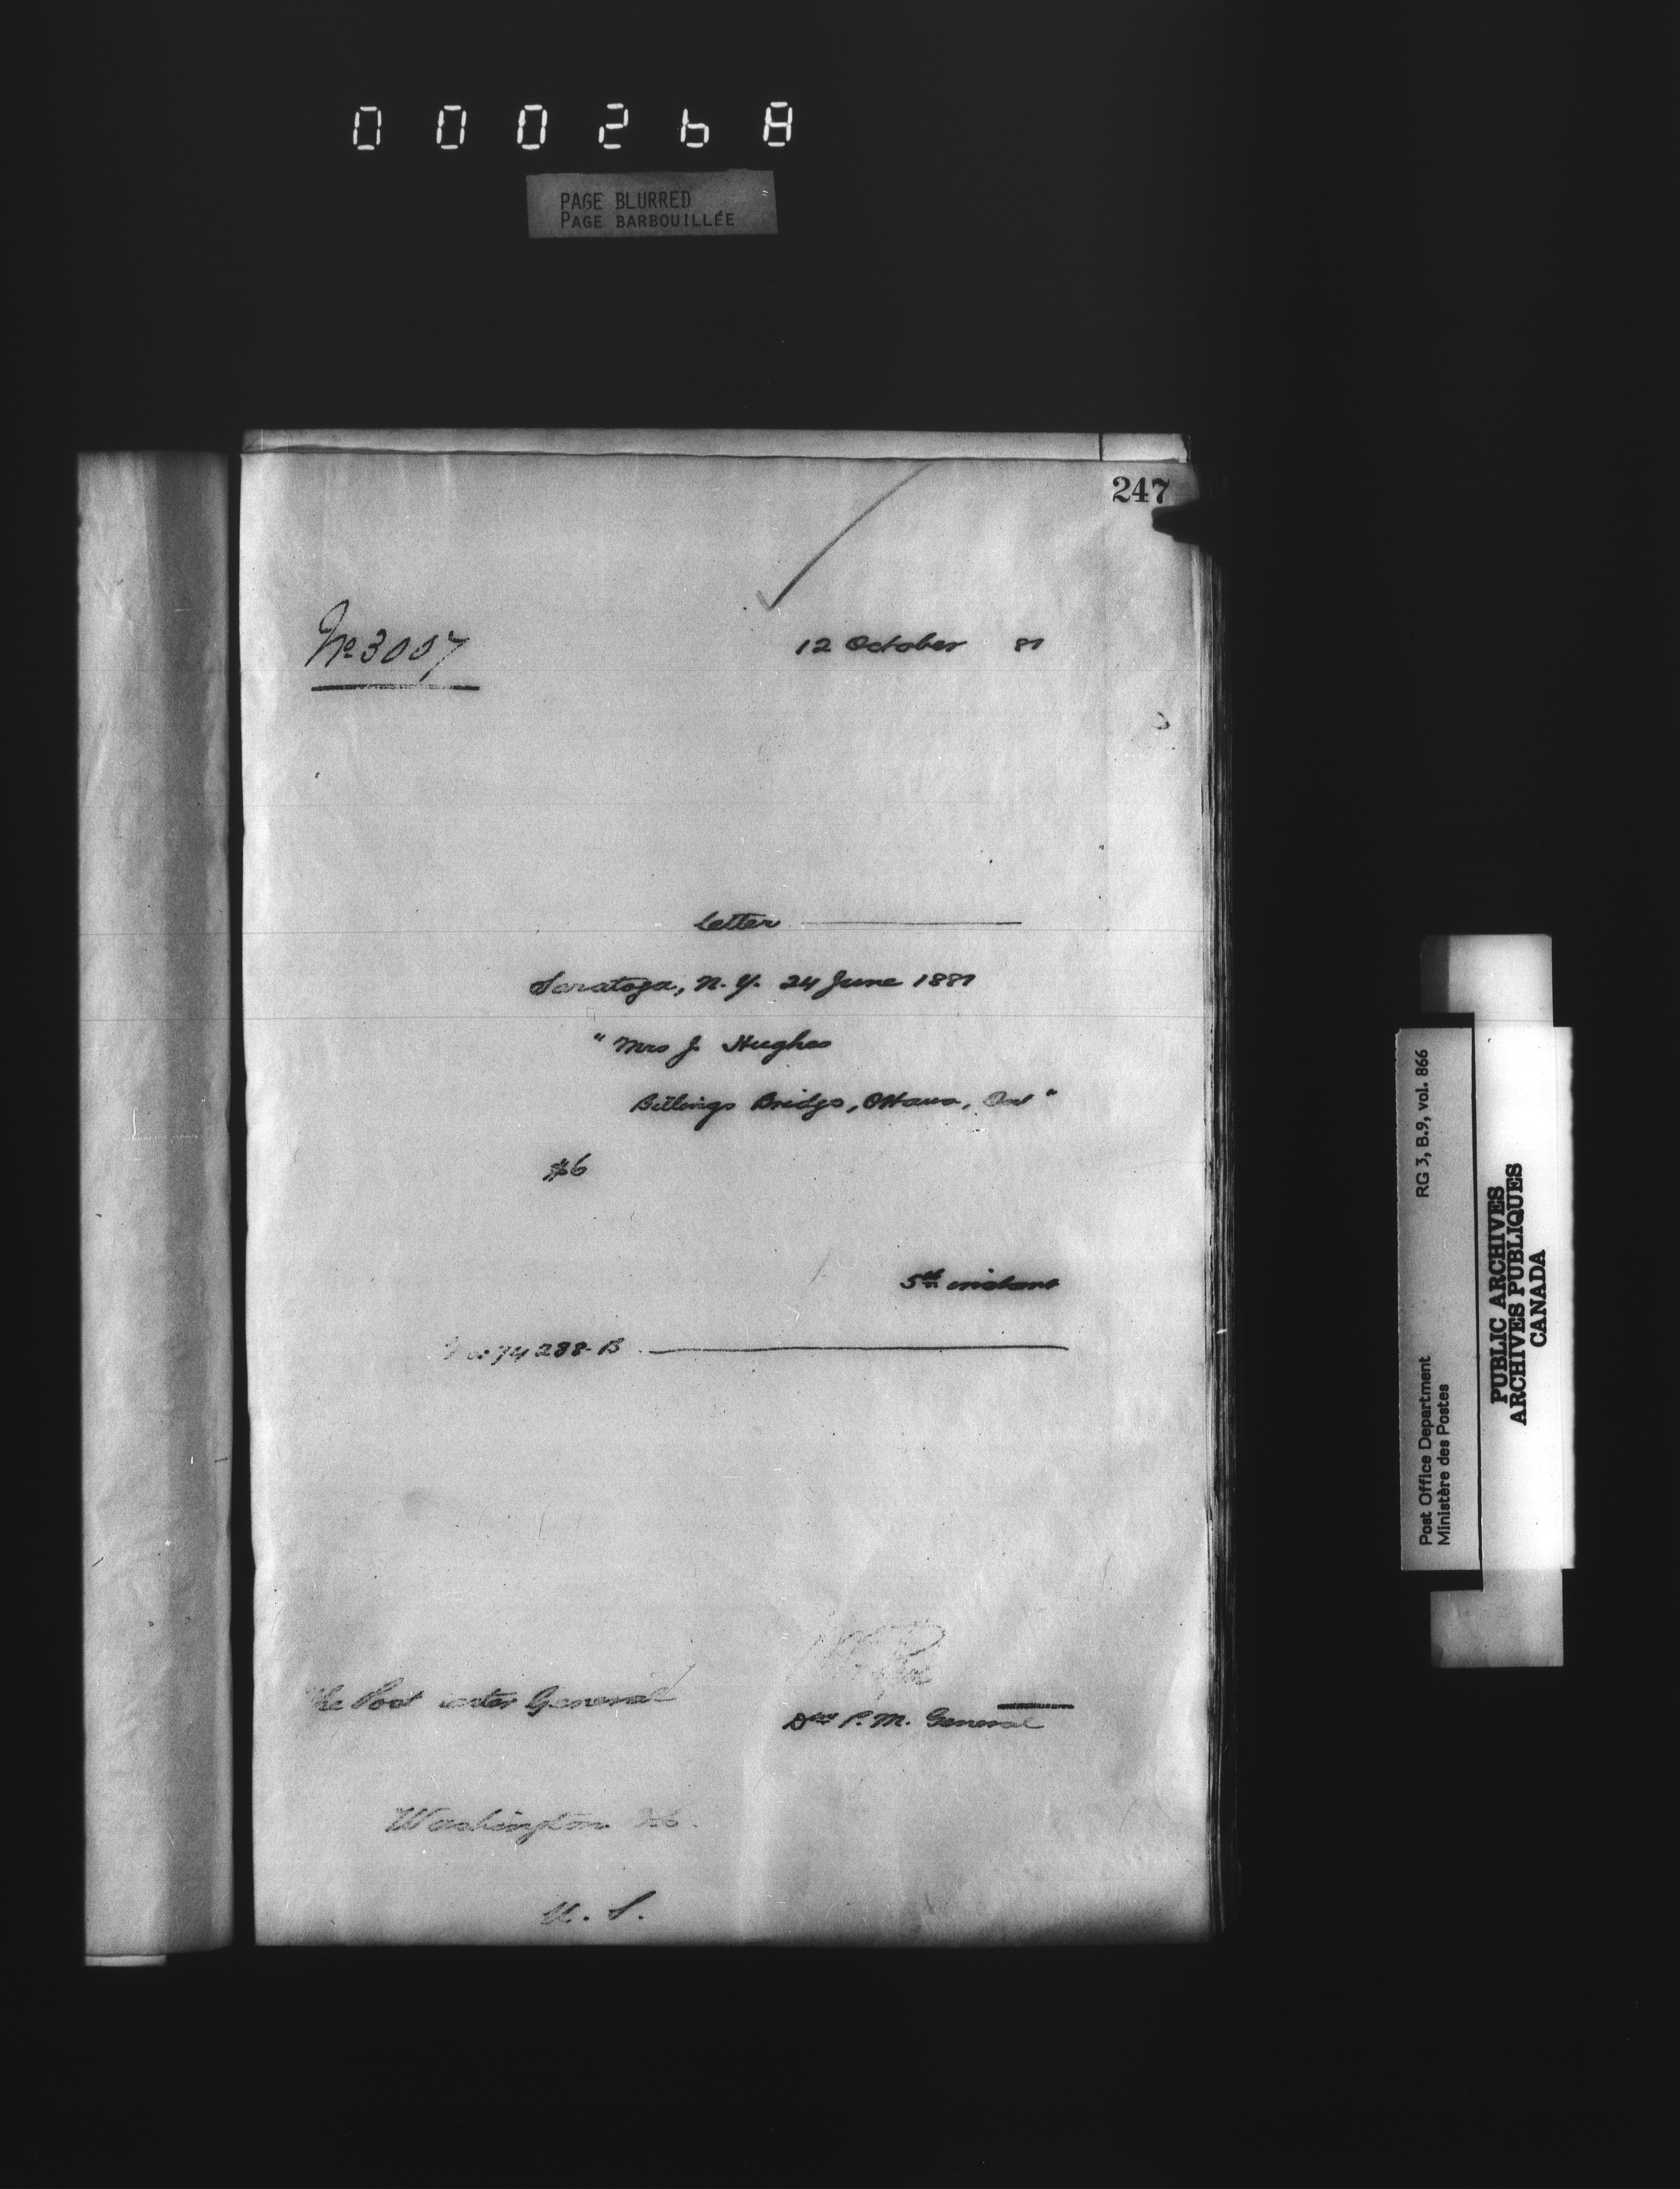 000268
PAGE BLURRED
PAGE BARBOUILLÉE
247
No 3007
12 October 81
Letter
Saratoga, N.Y. 24 June 1881
"Mrs J. Hughes
Billings Bridge, Ottawa, Ont"
$6
5th instant
74288-B
The Post General
P.M. General
Washington
U.S.
RG 3, B.9, vol. 866
Post Office Department
Ministère des Postes
PUBLIC ARCHIVES
ARCHIVES PUBLIQUES
CANADA